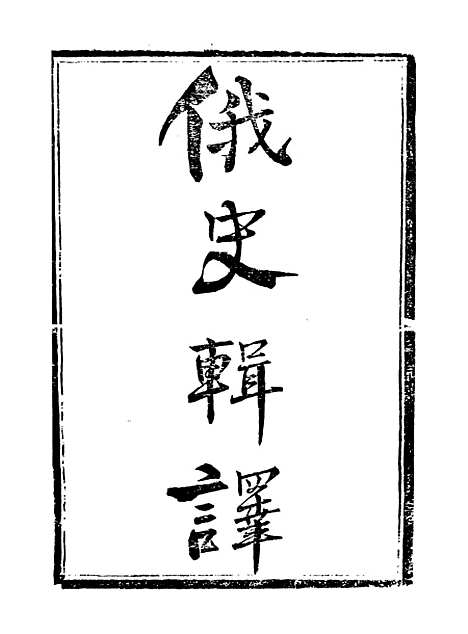 俄史輯譯